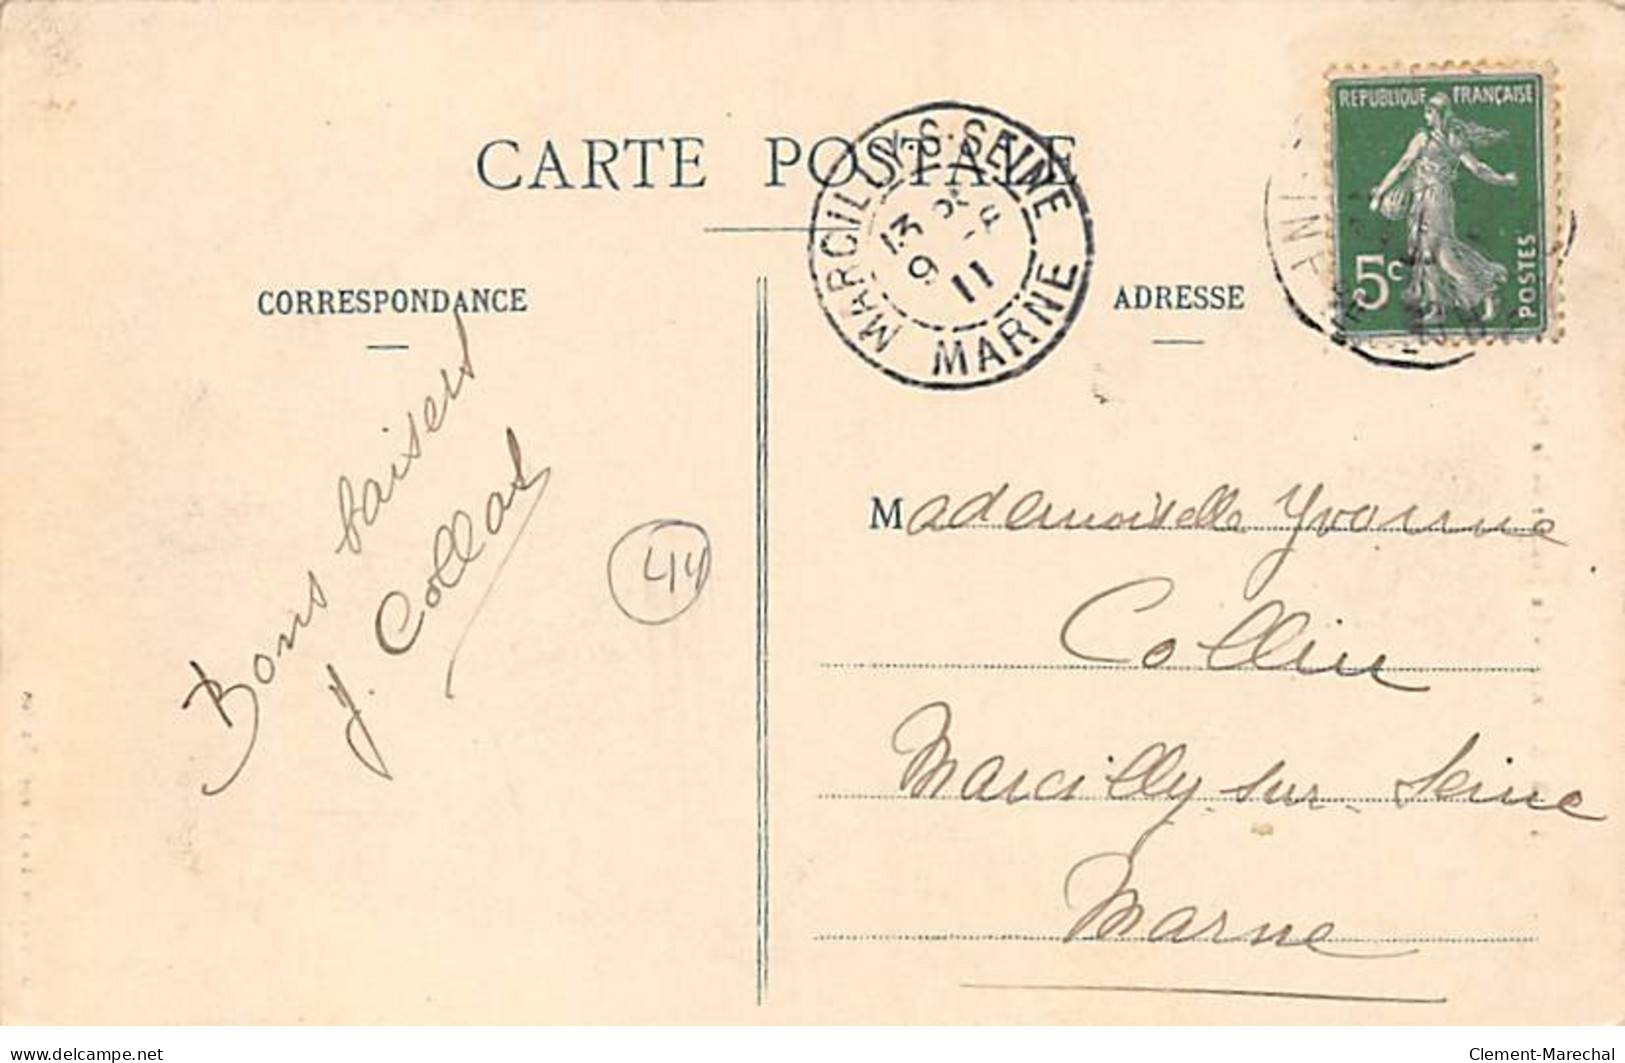 CARTE POSTALE
CORRESPONDANCE
ADRESSE
MARCILLY-S-SEINE
13
9
11
MARNE
REPUBLIQUE FRANÇAISE
5c
POSTES
Bons baisers
Y. Collas
44
Mademoiselle Yvonne
Collin
Marcilly-sur-Seine
Marne
delcampe.net
Clement-Marechal